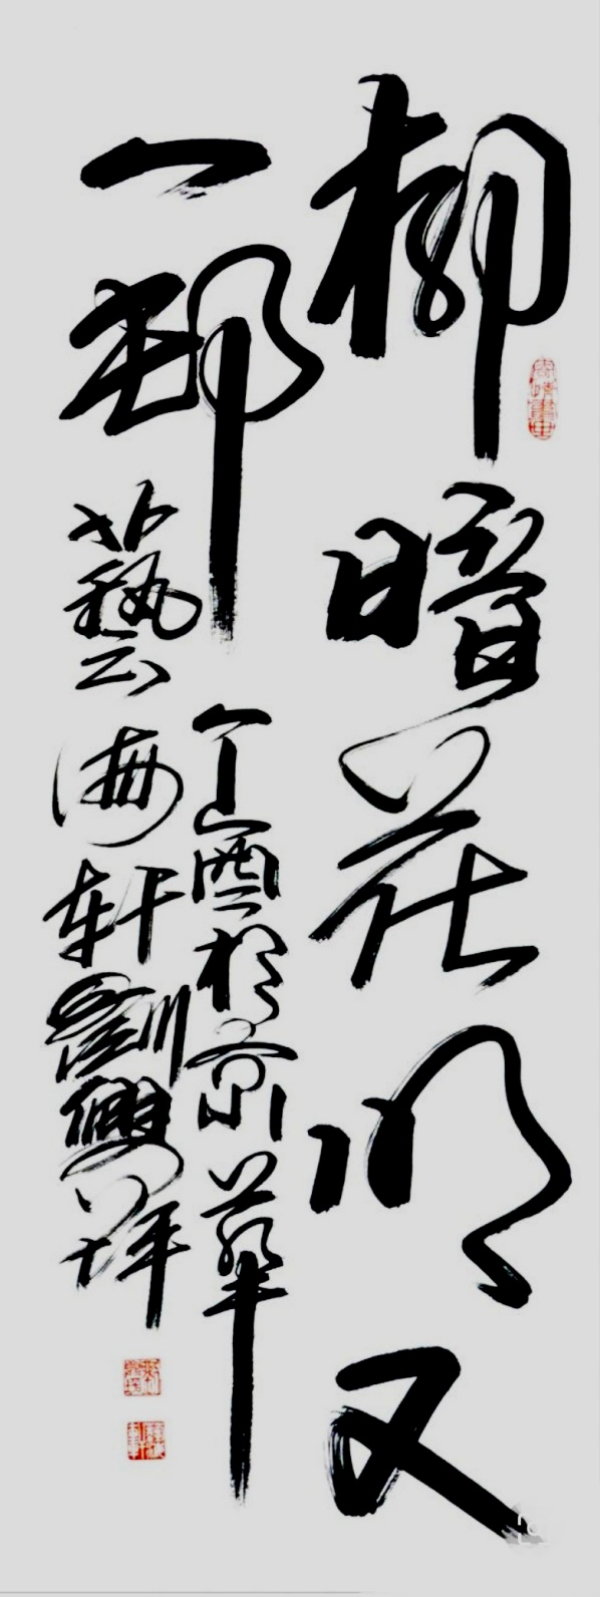 柳暗花明又
一邨
丁酉於京華
藝海軒劉興祥